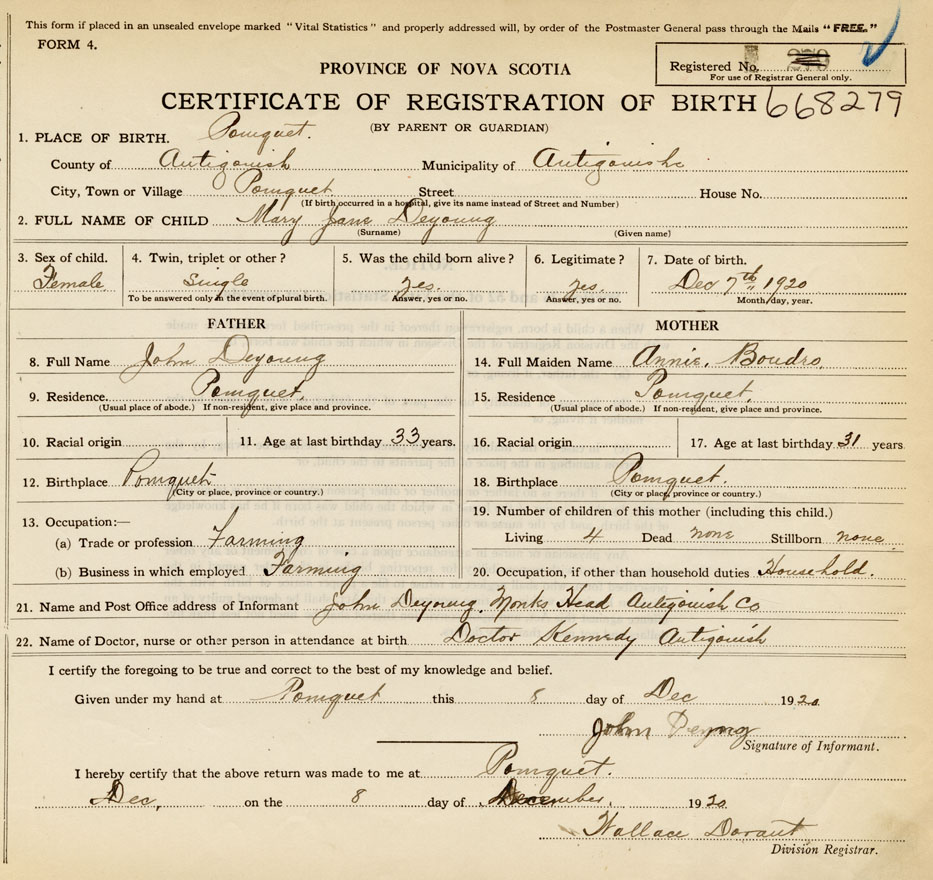 This form if placed in an unsealed envelope marked "Vital Statistics" and properly addressed will, by order of the Postmaster General pass through the Mails "FREE."
FORM 4.
Registered No.
For use of Registrar General only.
PROVINCE OF NOVA SCOTIA
CERTIFICATE OF REGISTRATION OF BIRTH 668279
(BY PARENT OR GUARDIAN)
1. PLACE OF BIRTH. Pomquet.
County of Antigonish Municipality of Antigonish
City, Town or Village Pomquet Street House No.
(If birth occurred in a hospital, give its name instead of Street and Number)
2. FULL NAME OF CHILD Mary Jane Deyoung
(Surname) (Given name)
3. Sex of child. 4. Twin, triplet or other? 5. Was the child born alive? 6. Legitimate? 7. Date of birth.
Female Single yes. yes. Dec 7th 1920
To be answered only in the event of plural birth. Answer, yes or no. Answer, yes or no. Month/day, year.
FATHER MOTHER
8. Full Name John Deyoung 14. Full Maiden Name Annie. Boudro
9. Residence. Pomquet. 15. Residence Pomquet.
(Usual place of abode.) If non-resident, give place and province. (Usual place of abode.) If non-resident, give place and province.
10. Racial origin 11. Age at last birthday 33 years. 16. Racial origin 17. Age at last birthday 31 years
12. Birthplace Pomquet 18. Birthplace Pomquet.
(City or place, province or country.) (City or place, province or country.)
13. Occupation:— 19. Number of children of this mother (including this child.)
(a) Trade or profession Farming Living 4 Dead none Stillborn none
(b) Business in which employed Farming 20. Occupation, if other than household duties Household.
21. Name and Post Office address of Informant John Deyoung. Monks Head Antigonish Co
22. Name of Doctor, nurse or other person in attendance at birth Doctor Kennedy Antigonish
I certify the foregoing to be true and correct to the best of my knowledge and belief.
Given under my hand at Pomquet this 8 day of Dec 1920
John Deyong
Signature of Informant.
I hereby certify that the above return was made to me at Pomquet.
Dec, on the 8 day of December, 1920
Wallace Dorant
Division Registrar.